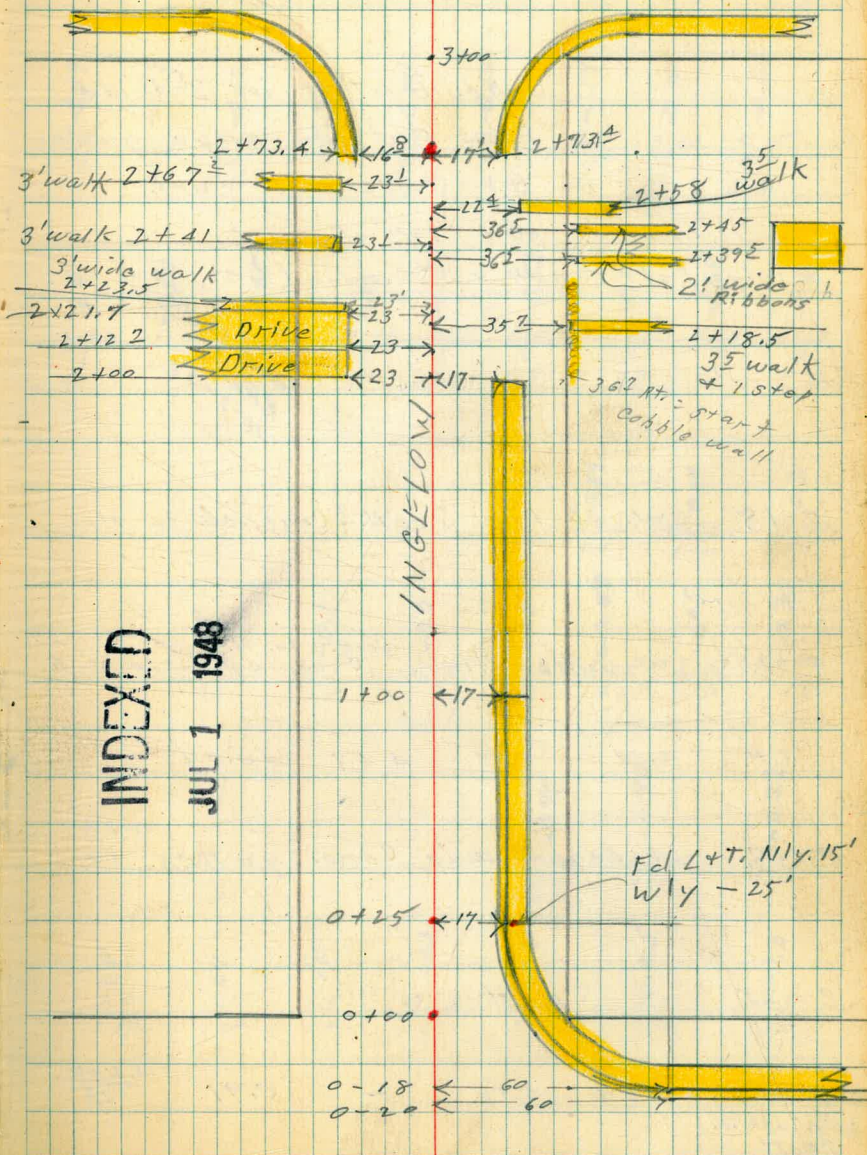 3+00
2+73.4
16 8
17 1
2+73 4
3 5
walk
3' walk 2+67 2
23 1
22 4
2+58
36 5
2+45
3' walk 2+41
23 1
36 5
2+39 5
3' wide walk
2+23.5
23'
2' wide
Ribbons
2+21.7
23
Drive
35 7
2+18.5
2+12 2
23
Drive
3 5 walk
+ 1 step
2+00
23
17
36 2 Rt. = start
cobble wall
INGLOW
INDEXED
JUL 1 1948
1+00
17
Fd L+T. N'ly. 15'
W'ly - 25'
0+25
17
0+00
0-18
60
0-20
60